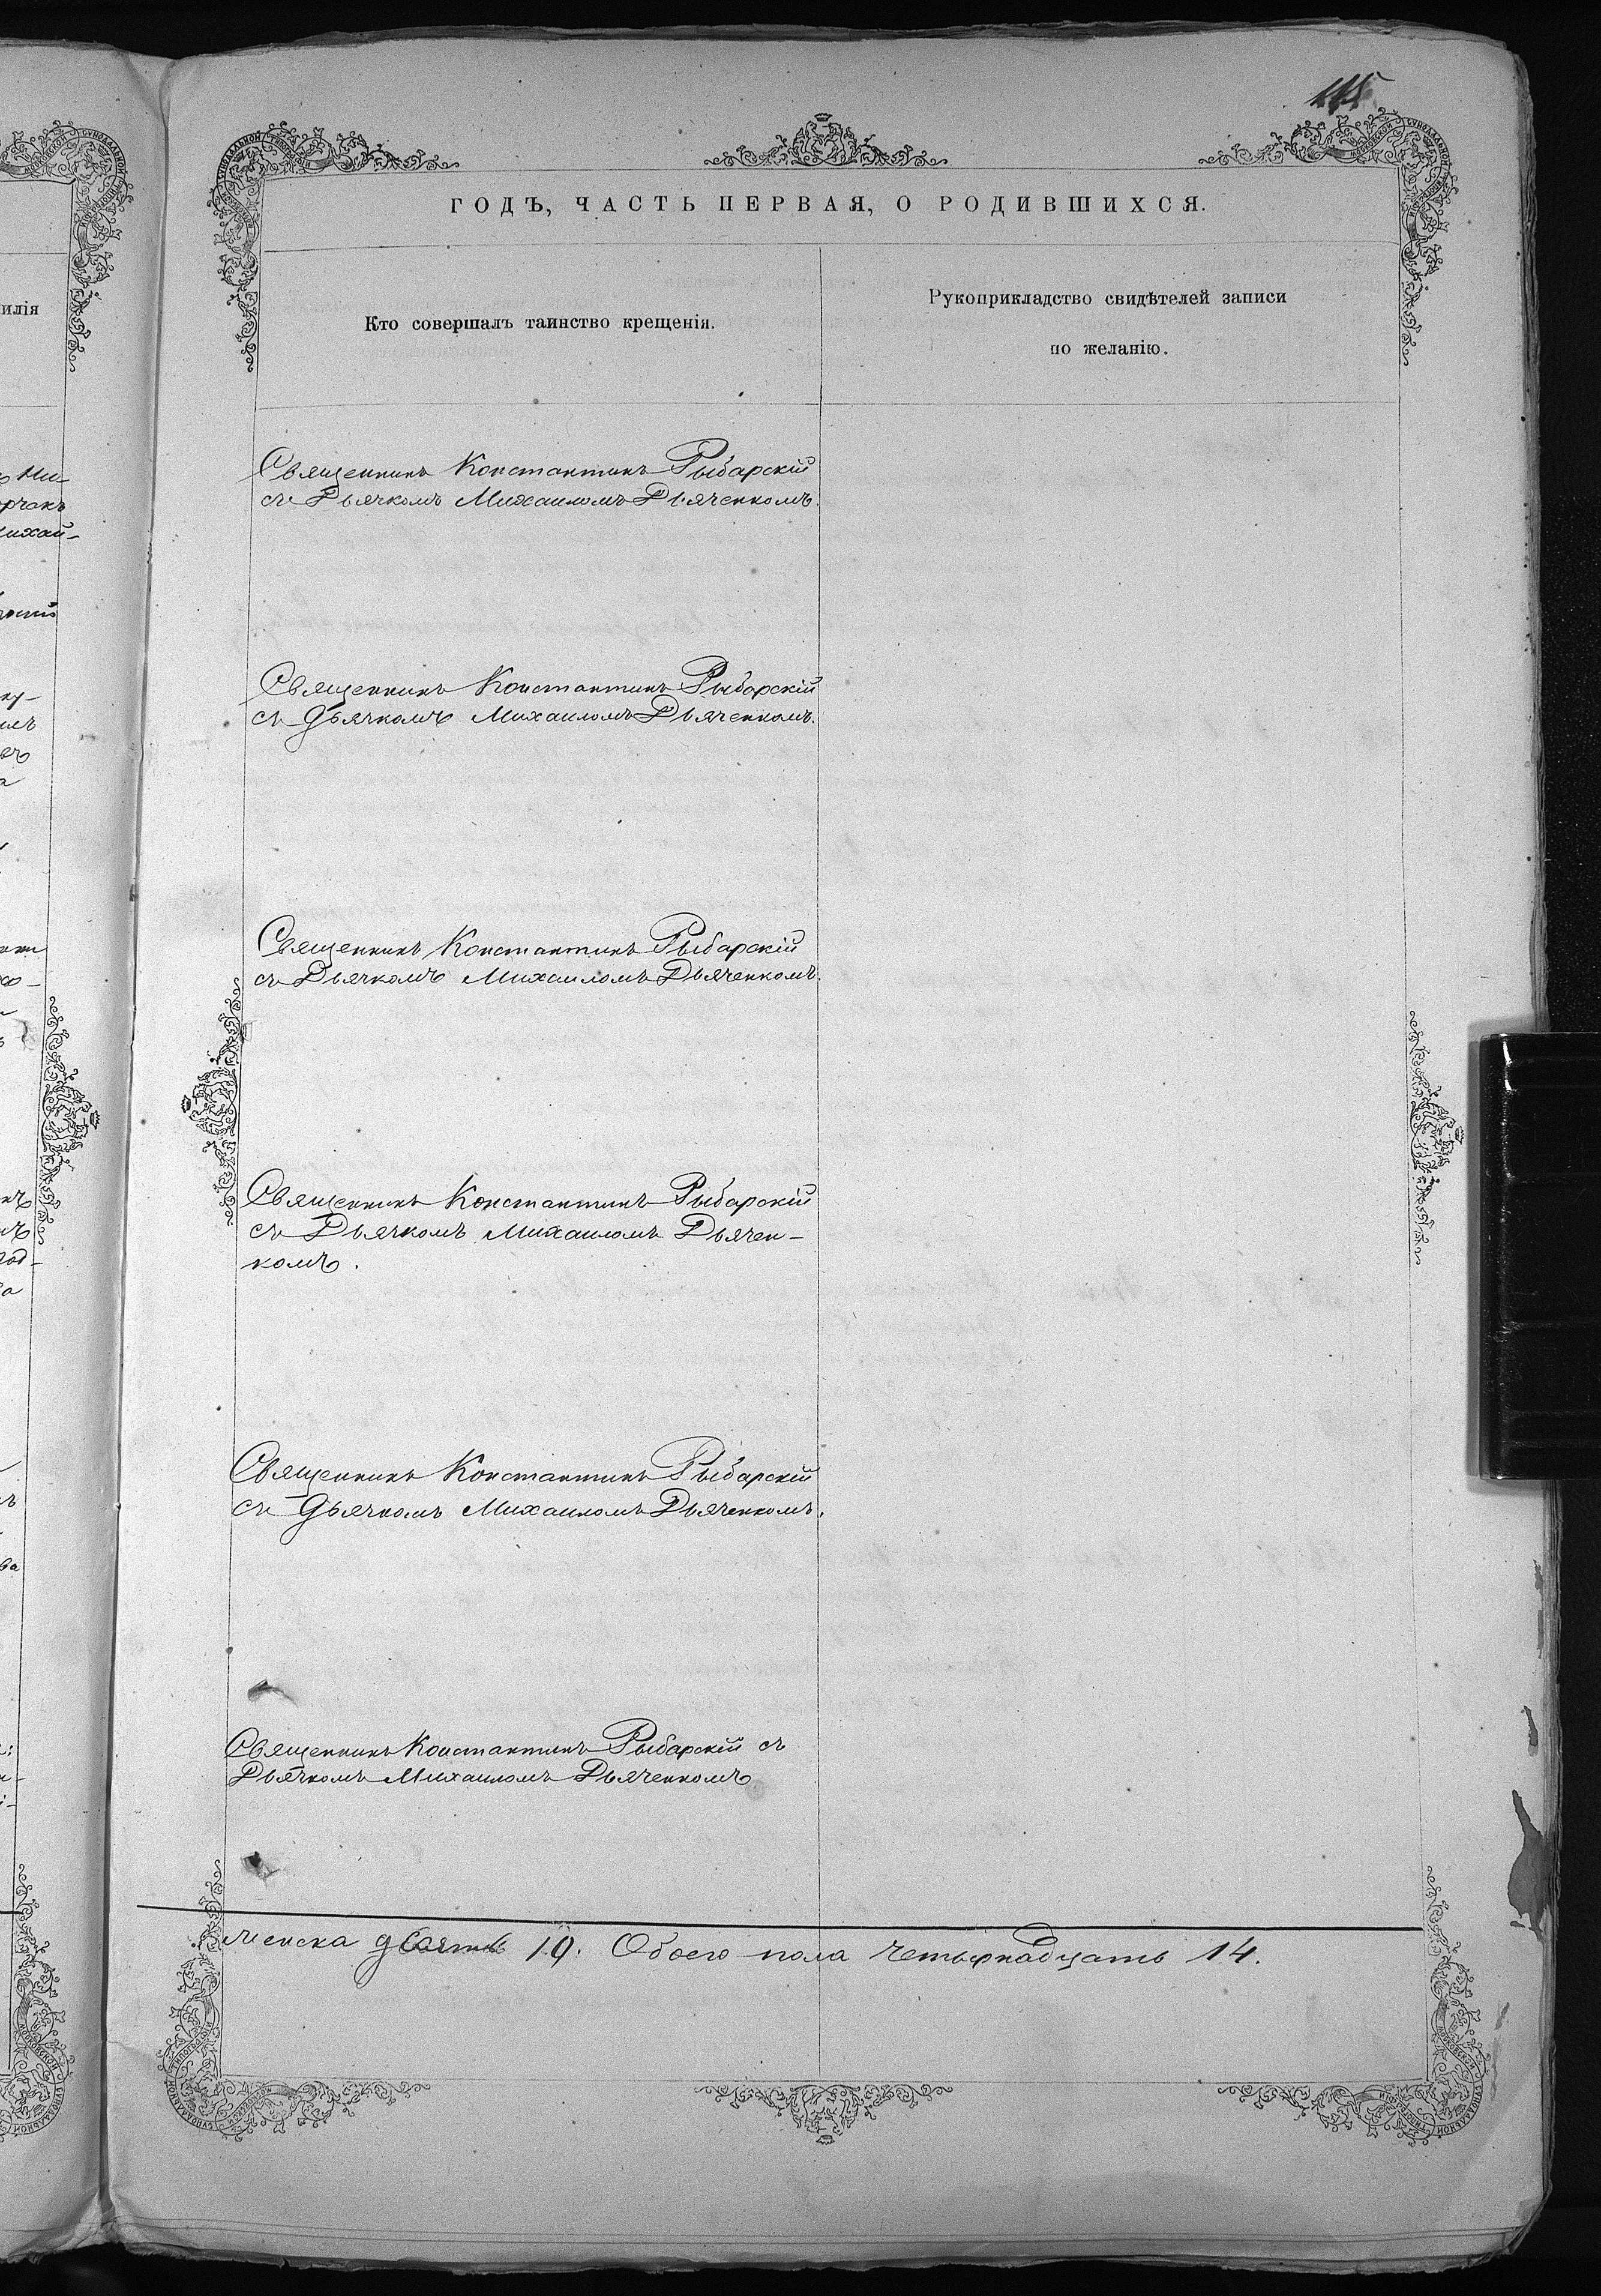 115
ГОДЪ, ЧАСТЬ ПЕРВАЯ, О РОДИВШИХСЯ.
илія
Кто совершалъ таинство крещенія.
Рукоприкладство свидѣтелей записи
по желанію.
Священникъ Константинъ Рыбарскій
съ Дьячкомъ Михаиломъ Дьяченкомъ.
Священникъ Константинъ Рыбарскій
съ Дьячкомъ Михаиломъ Дьяченкомъ.
Священникъ Константинъ Рыбарскій
съ Дьячкомъ Михаиломъ Дьяченкомъ.
Священникъ Константинъ Рыбарскій
съ Дьячкомъ Михаиломъ Дьячен-
комъ.
Священникъ Константинъ Рыбарскій
съ Дьячкомъ Михаиломъ Дьяченкомъ.
Священникъ Константинъ Рыбарскій съ
Дьячкомъ Михаиломъ Дьяченкомъ
женска Обоего пола четырнадцать 14.